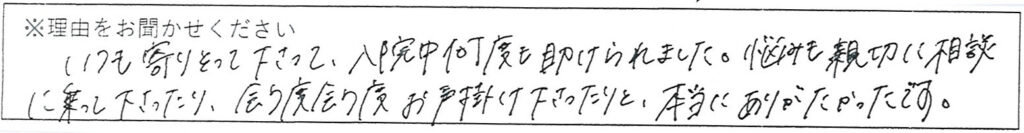 ※理由をお聞かせください
いつも寄りそって下さって、入院中何度も助けられました。悩みも親切に相談
に乗って下さったり、会う度会う度お声掛け下さったりと、本当にありがたかったです。